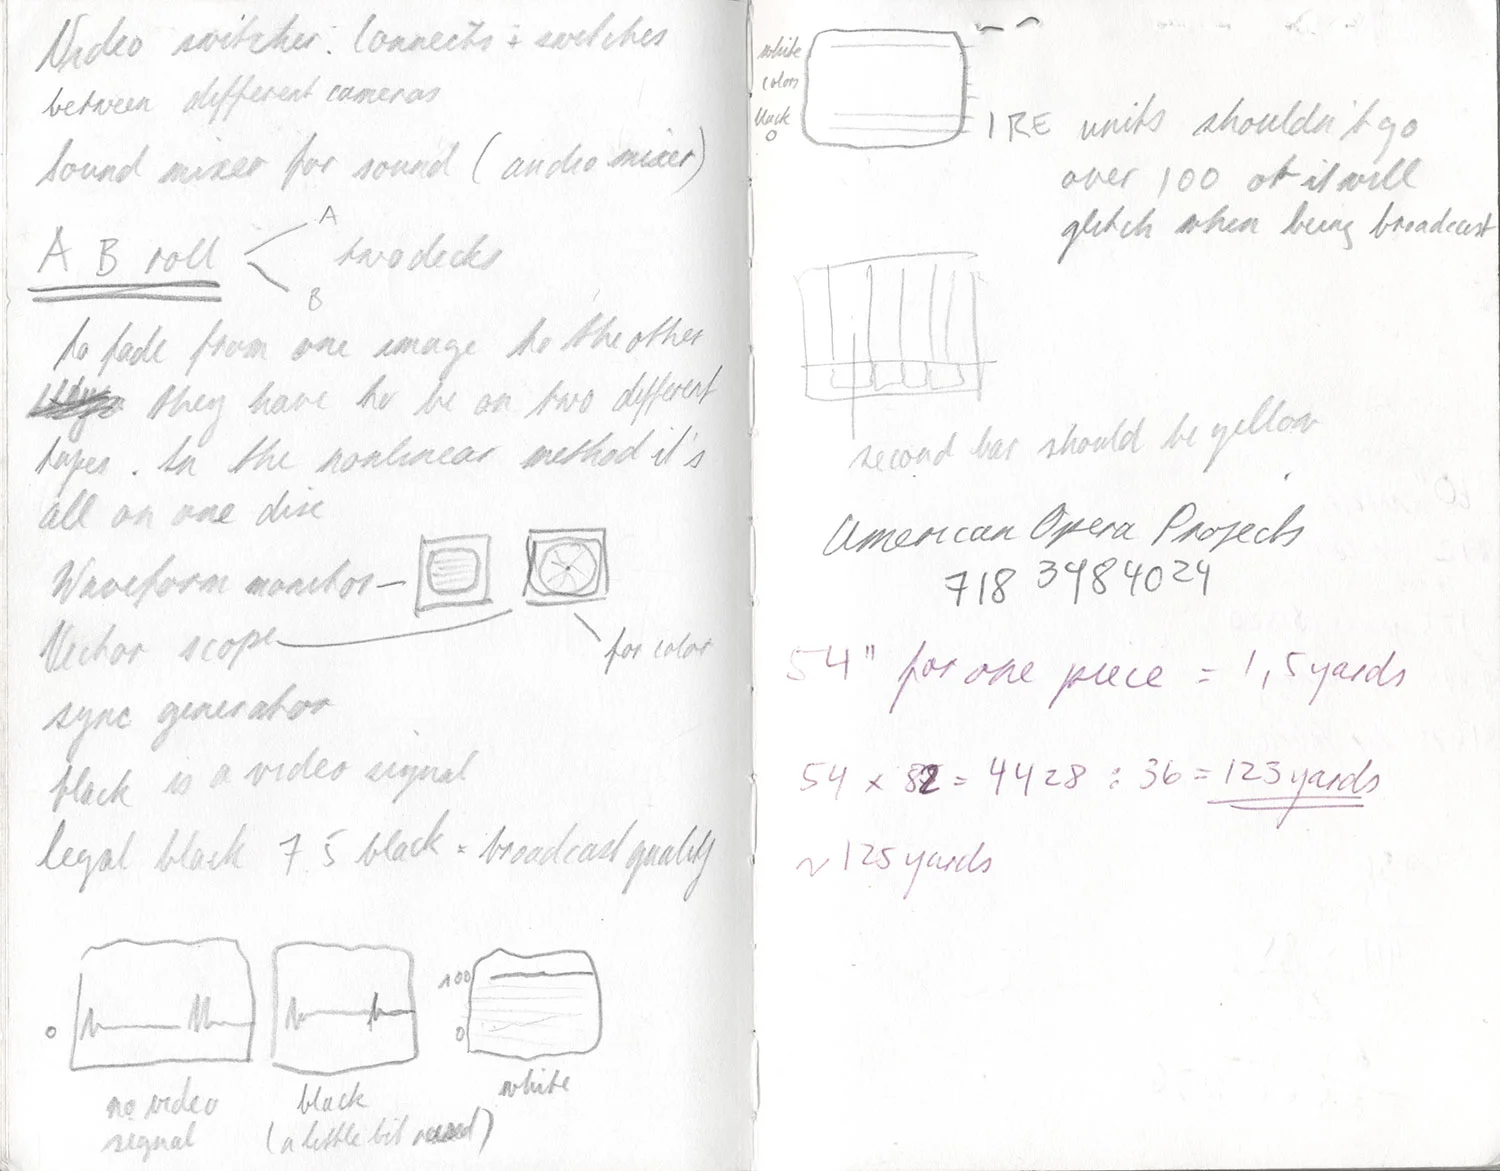 Video switcher: Connects + switches
between different cameras
Sound mixer for sound (audio mixer)
A B roll
A
B
two decks
to fade from one image to the other
they have to be on two different
tapes. In the nonlinear method it's
all on one disc
Waveform monitor
Vector scope
for color
sync generator
black is a video signal
legal black 7 5 black = broadcast quality
0
no video
signal
black
(a little bit raised)
100
0
white
white
colors
black
0
IRE units shouldn't go
over 100 or it will
glitch when being broadcast
second bar should be yellow
American Opera Projects
718 3984024
54" for one piece = 1,5 yards
54 x 82 = 4428 : 36 = 123 yards
~ 125 yards